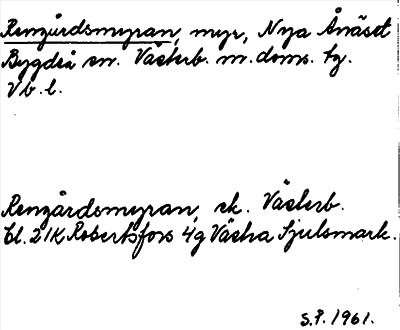 Rengårdsmyran, myr, Nya Ånäset
Bygdeå sn. Västerb. m. doms. tg.
Vb. l.
Rengårdsmyran, sk. Västerb.
bl. 21K Robertsfors 4g Västra Sjulsmark.
S.P. 1961.